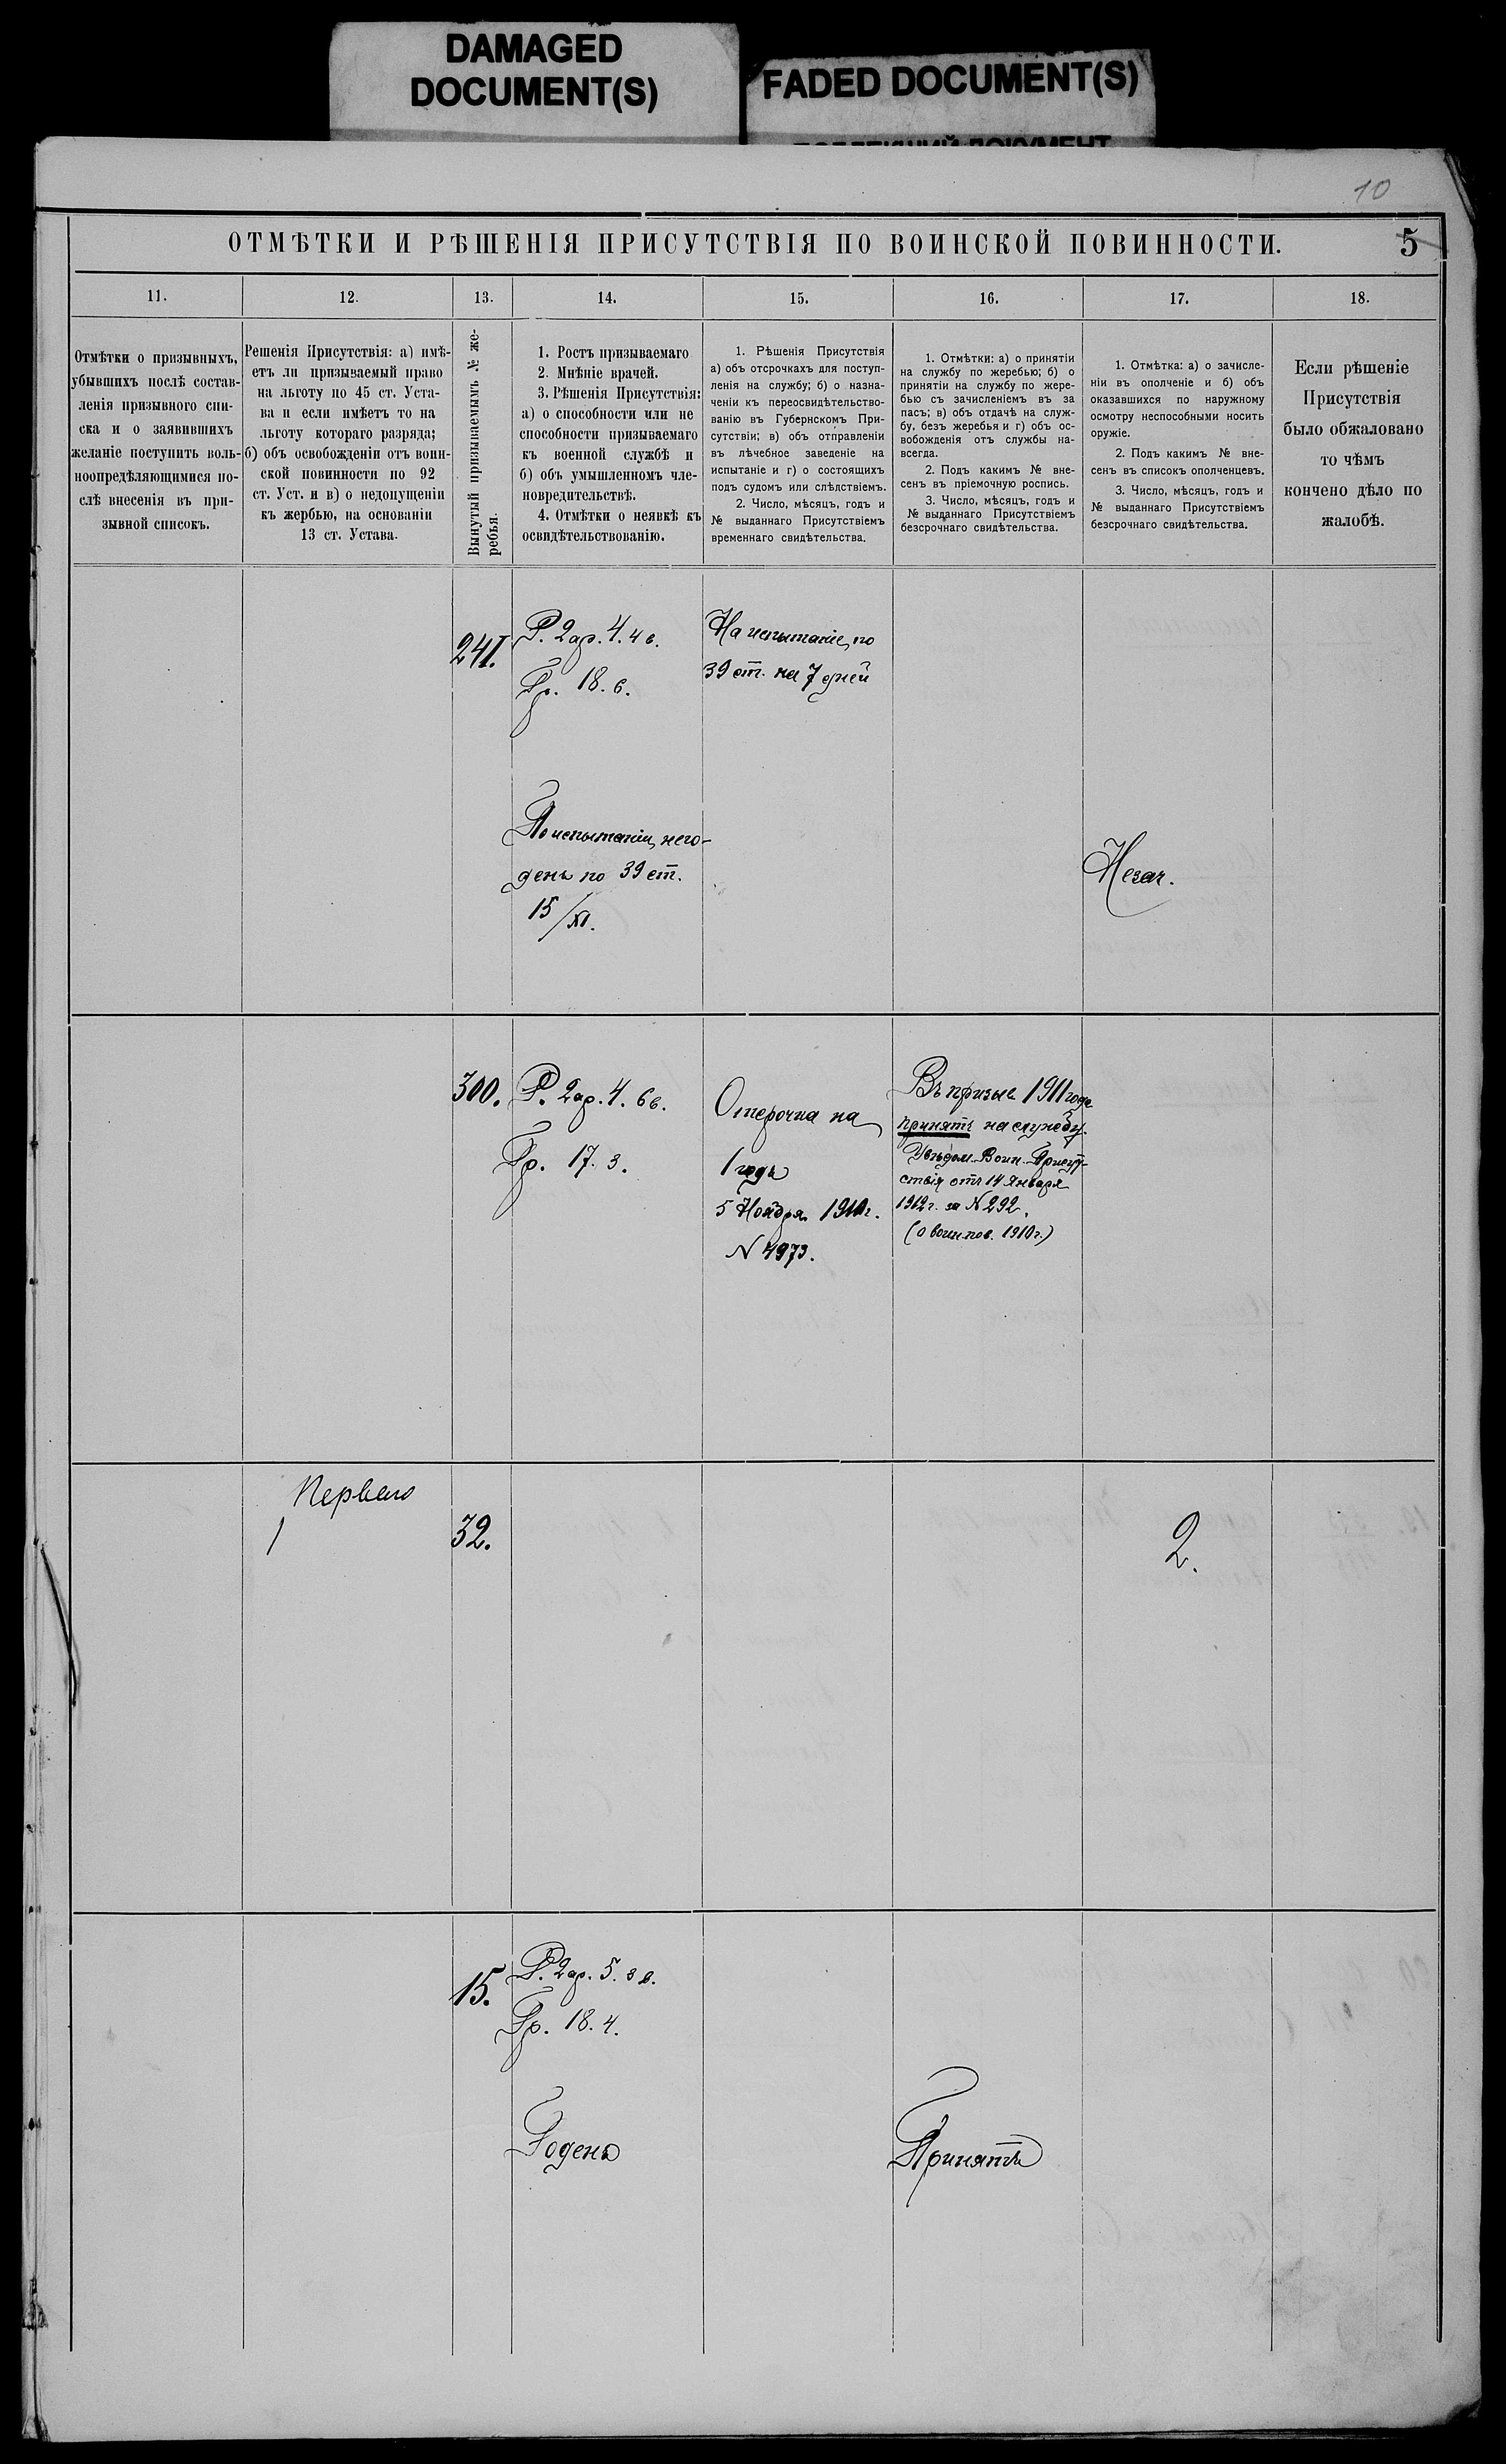 DAMAGED
DOCUMENT(S)
FADED DOCUMENT(S)
10
ОТМѢТКИ И РѢШЕНІЯ ПРИСУТСТВІЯ ПО ВОИНСКОЙ ПОВИННОСТИ.
5
11.
12.
13.
14.
15.
16.
17.
18.
Отмѣтки о призывныхъ,
убывшихъ послѣ состав-
ленія призывного спи-
ска и о заявившихъ
желаніе поступить воль-
ноопредѣляющимися по-
слѣ внесенія въ при-
зывной списокъ.
Решенія Присутствія: а) имѣ-
етъ ли призываемый право
на льготу по 45 ст. Уста-
ва и если имѣетъ то на
льготу котораго разряда;
б) объ освобожденіи отъ воин-
ской повинности по 92
ст. Уст. и в) о недопущеніи
къ жербью, на основаніи
13 ст. Устава.
Вынутый призываемымъ № же-
ребья.
1. Ростъ призываемаго
2. Мнѣніе врачей.
3. Рѣшенія Присутствія:
а) о способности или не
способности призываемаго
къ военной службѣ и
б) объ умышленномъ чле-
новредительствѣ.
4. Отмѣтки о неявкѣ къ
освидѣтельствованію.
1. Рѣшенія Присутствія
а) объ отсрочкахъ для поступ-
ленія на службу; б) о назна-
ченіи къ переосвидѣтельство-
ванію въ Губернскомъ При-
сутствіи; в) объ отправленіи
въ лѣчебное заведеніе на
испытаніе и г) о состоящихъ
подъ судомъ или слѣдствіемъ.
2. Число, мѣсяцъ, годъ и
№ выданнаго Присутствіемъ
временнаго свидѣтельства.
1. Отмѣтки: а) о принятіи
на службу по жеребью; б) о
принятіи на службу по жере-
бью съ зачисленіемъ въ за
пасъ; в) объ отдачѣ на служ-
бу, безъ жеребья и г) объ ос-
вобожденія отъ службы на-
всегда.
2. Подъ какимъ № вне-
сенъ въ пріемочную роспись.
3. Число, мѣсяцъ, годъ и
№ выданнаго Присутствіемъ
безсрочнаго свидѣтельства.
1. Отмѣтка: а) о зачисле-
ніи въ ополченіе и б) объ
оказавшихся по наружному
осмотру неспособными носить
оружіе.
2. Подъ какимъ № вне-
сенъ въ списокъ ополченцевъ.
3. Число, мѣсяцъ, годъ и
№ выданнаго Присутствіемъ
безсрочнаго свидѣтельства.
Если рѣшеніе
Присутствія
было обжаловано
то чѣмъ
кончено дѣло по
жалобѣ.
241.
Р. 2 ар. 4. 4 в.
Гр. 18. 6.
На испытаніе, по
39 ст. на 7 дней
По испытаніи, него-
денъ по 39 ст.
15/XI.
Незач.
300.
Р. 2 ар. 4. 6 в.
Гр. 17. 3.
Отсрочка на
1 годъ
5 Ноября 1910 г.
N 4973.
Въ призыв 1911 года
принятъ на службу.
Увѣдом. Воин. Присут-
ствія отъ 14 Января
1912 г. за N 292.
(о воин. пов. 1910 г.)
Перваго
1
32.
2.
15.
Р. 2 ар. 5. 3 в.
Гр. 18. 4.
Годенъ
Принятъ